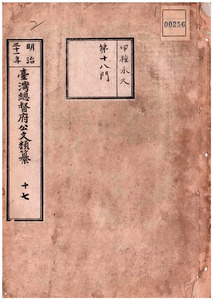 00256
甲種永久
第十八門
明治
三十一年
臺灣總督府公文類纂
十七